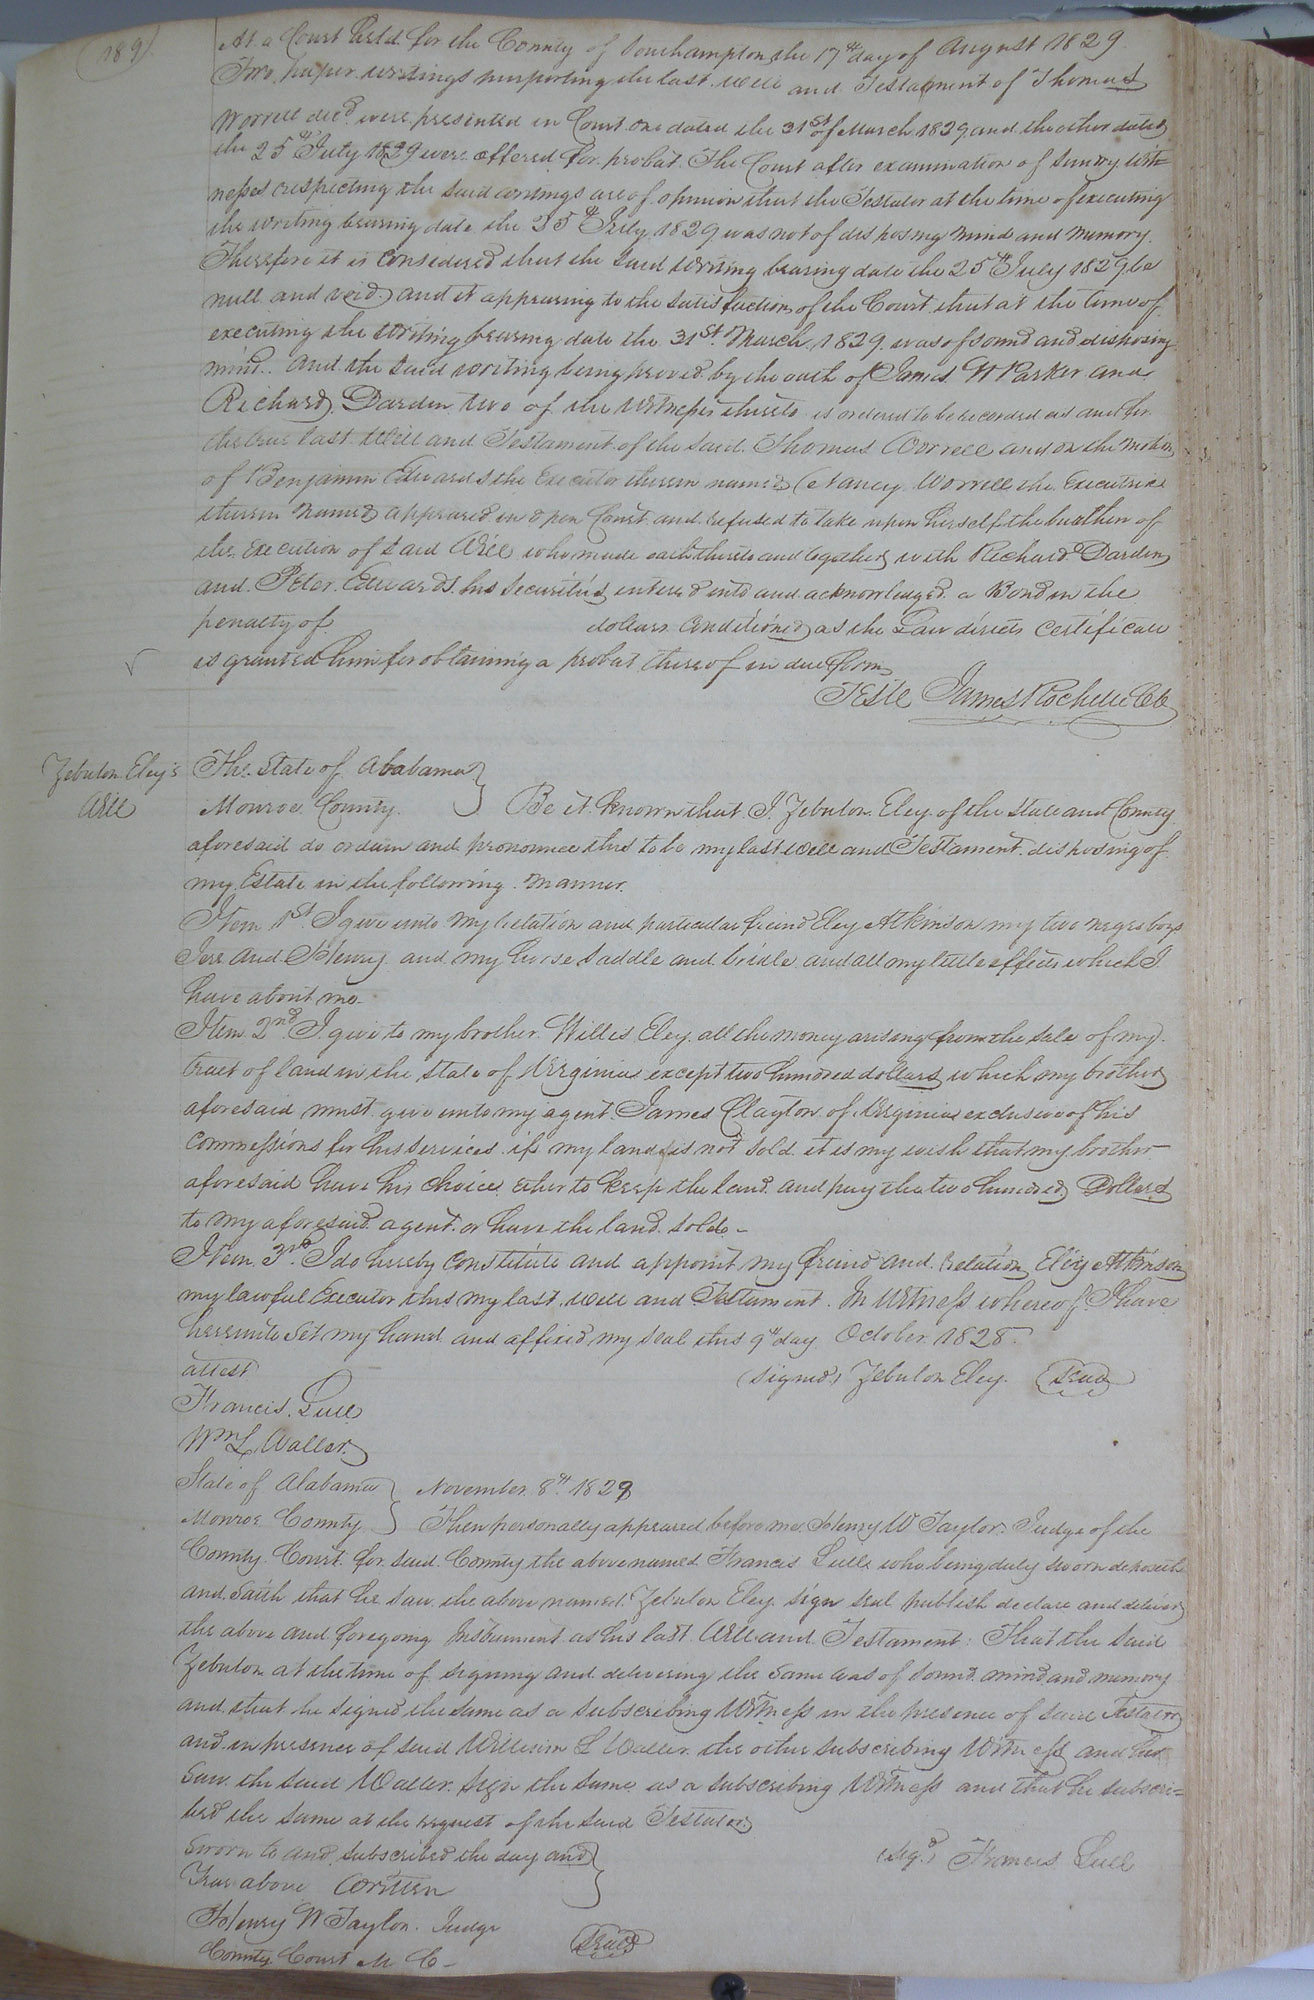 189
At a Court held for the County of Southampton the 17th day of August 1829
Two paper writings purporting the last will and Testament of Thomas
Worrell decd were presented in Court one dated the 31st of March 1829 and the other dated
the 25th July 1829 were offered for probat. The Court after examination of sundry wit-
nesses respecting the said writings are of opinion that the Testator at the time of executing
the writing bearing date the 25th July 1829 was not of disposing mind and memory.
Therefore it is considered that the said writing bearing date the 25th July 1829 be
null and void and it appearing to the satisfaction of the Court that at the time of
executing the writing bearing date the 31st March 1829 was of sound and disposing
mind. And the said writing being proved by the oath of James W Parker and
Richard Darden two of the Witnesses thereto is ordered to be recorded as and for
the true last Will and Testament of the said Thomas Worrell and on the motion
of Benjamin Edwards the Executor therein named (Nancy Worrell the Executrix
therein named appeared in open Court and refused to take upon herself the burthen of
the Execution of said Will who made oath thereto and together with Richard Darden
and Peter Edwards his securities entered into and acknowledged a Bond in the
penalty of dollars conditioned as the Law directs certificate
is granted him for obtaining a probat thereof in due form
Teste James Rochelle CC
Zebulon Eley's
Will
The State of Alabama
Monroe County } Be it known that I Zebulon Eley of the State and County
aforesaid do ordain and pronounce this to be my last will and Testament disposing of
my Estate in the following manner.
Item 1st I give unto my relation and particular friend Eley Atkinson my two negro boys
Jere and Henry and my horse saddle and bridle and all my little effects which I
have about me.
Item 2nd I give to my brother Willis Eley all the money arising from the sale of my
tract of land in the State of Virginia except two hundred dollars which my brother
aforesaid must give unto my agent James Clayton of Virginia exclusive of his
commissions for his services if my land is not sold it is my wish that my brother
aforesaid have his choice ether to keep the land and pay the two hundred Dollars
to my aforesaid agent or have the land sold -
Item 3rd I do hereby constitute and appoint my friend and relation Eley Atkinson
my lawful Executor this my last will and Testament. In Witness whereof I have
hereunto set my hand and affixed my seal this 9th day October 1828.
attest (signed) Zebulon Eley (Seal)
Francis Lull
Wm L Waller
State of Alabama } November 8th 1828
Monroe County } Then personally appeared before me Henry W Taylor Judge of the
County Court for said County the above named Francis Lull who being duly sworn deposeth
and saith that he saw the above named Zebulon Eley sign seal publish declare and deliver
the above and foregoing Instrument as his last Will and Testament: That the said
Zebulon at the time of signing and delivering the same was of sound mind and memory
and that he signed the same as a subscribing Witness in the presence of said Testator
and in presence of said William L Waller the other subscribing Witness and he
saw the said Waller sign the same as a subscribing Witness and that he subscri=
bed the same at the request of the said Testator
Sworn to and subscribed the day and (sigd) Francis Lull
Year above Written
Henry W Taylor Judge (Seal)
County Court M C -